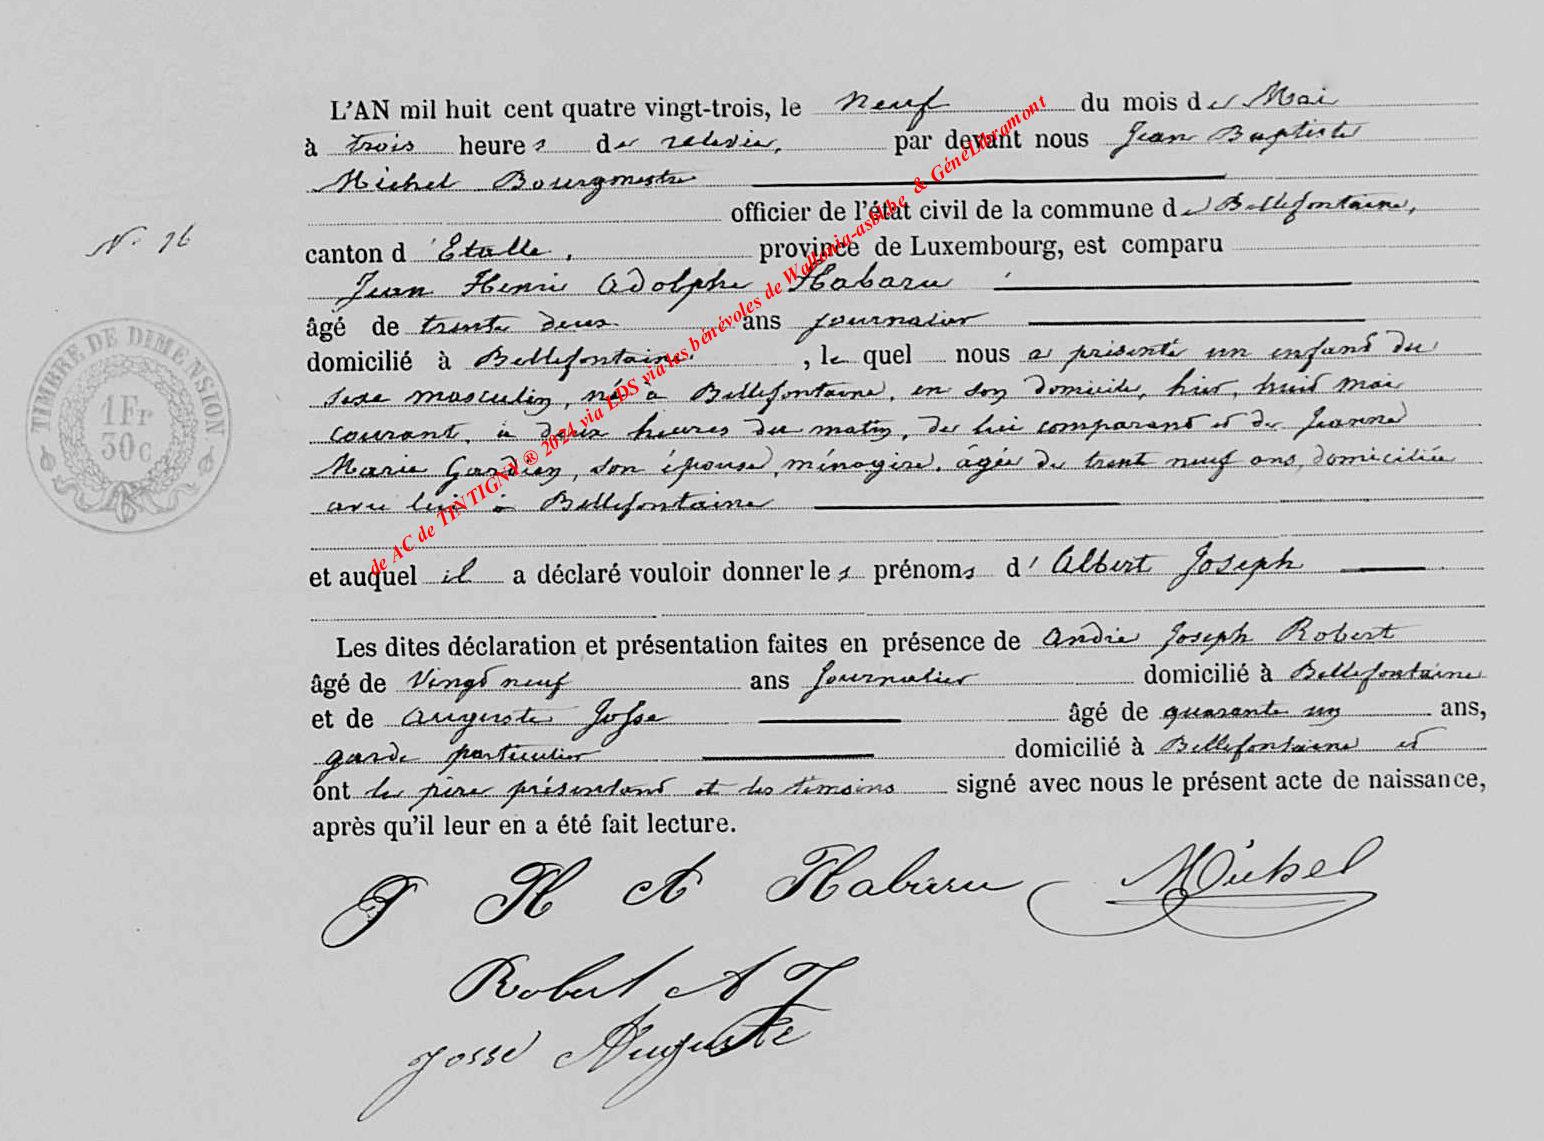 L'AN mil huit cent quatre vingt-trois, le neuf du mois de Mai
à trois heures de relevée, par devant nous Jean Baptiste
Michel Bourgmestre
officier de l'état civil de la commune de Bellefontaine,
N°
canton d'Etalle, province de Luxembourg, est comparu
Jean Henri Adolphe Habaru
âgé de trente deux ans journalier
domicilié à Bellefontaine, lequel nous a présenté un enfant du
sexe masculin, né à Bellefontaine, en son domicile, hier, huit mai
courant, à deux heures du matin, de lui comparant et de Jeanne
Marie Gardien, son épouse, ménagère, âgée de trent neuf ans, domiciliée
avec lui à Bellefontaine
et auquel il a déclaré vouloir donner les prénoms d'Albert Joseph
Les dites déclaration et présentation faites en présence de André Joseph Robert
âgé de Vingt neuf ans Journalier domicilié à Bellefontaine
et de Auguste Josse âgé de quarante un ans,
garde particulier domicilié à Bellefontaine et
ont le père présentant et les témoins signé avec nous le présent acte de naissance,
après qu'il leur en a été fait lecture.
J H A Habaru Michel
Robert A J
Josse Auguste
TIMBRE DE DIMENSION
1Fr
30c
de AC de TINTIGNY ® 2024 via LDS via les bénévoles de Wallonia-asbl.be & GénéLibramont